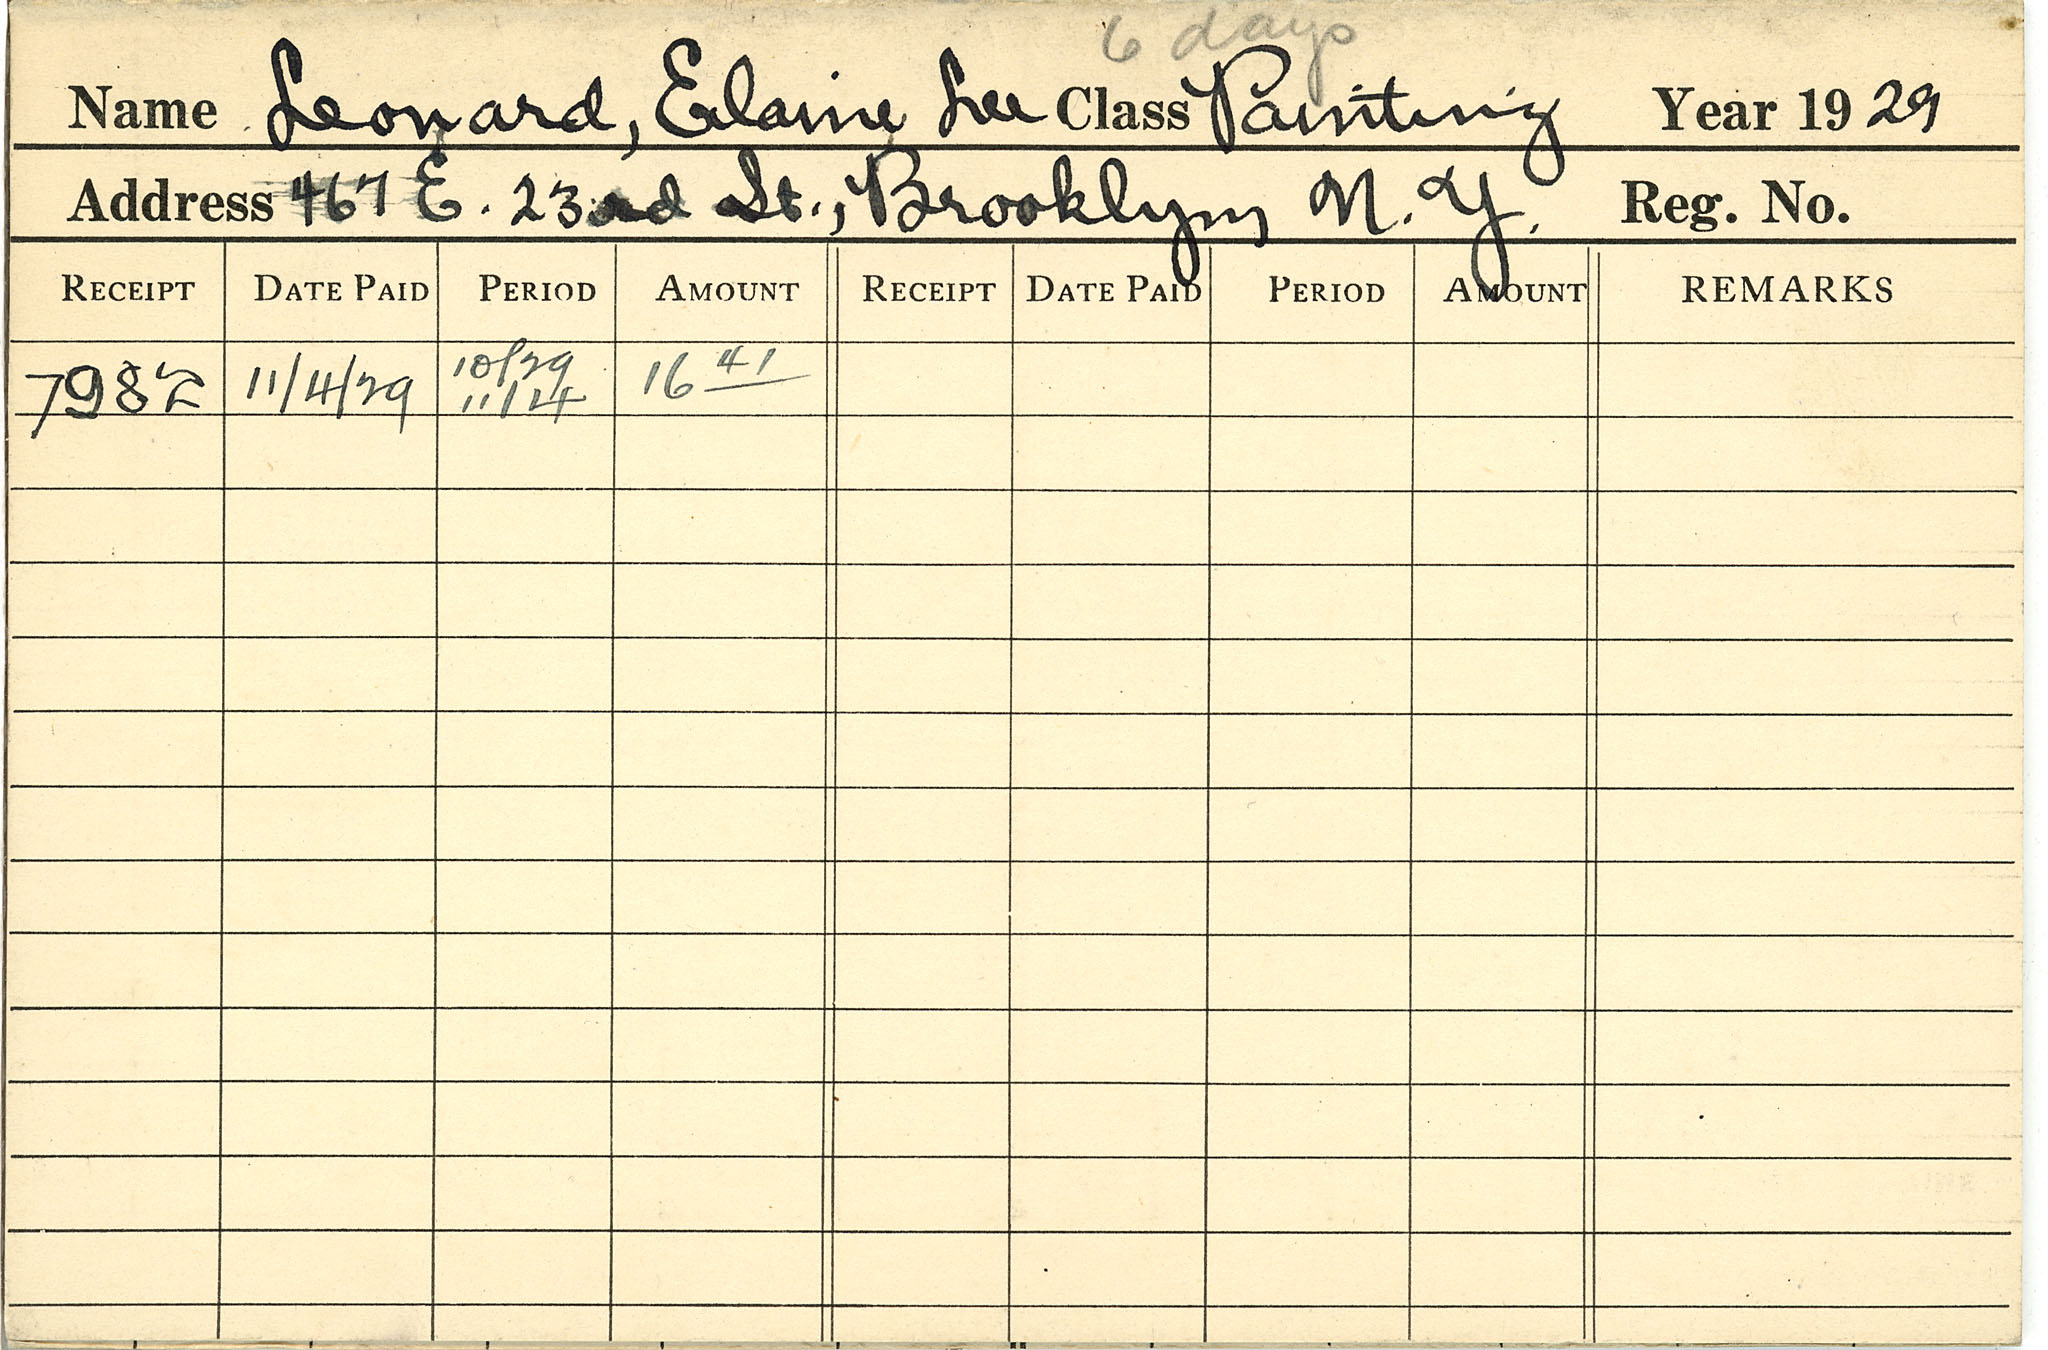 6 days
Name Leonard, Elaine Lee Class Painting Year 1929
Address 467 E. 23rd St., Brooklyn N.Y. Reg. No.
RECEIPT DATE PAID PERIOD AMOUNT RECEIPT DATE PAID PERIOD AMOUNT REMARKS
7982 11/4/29 10/29 16 41
11/14